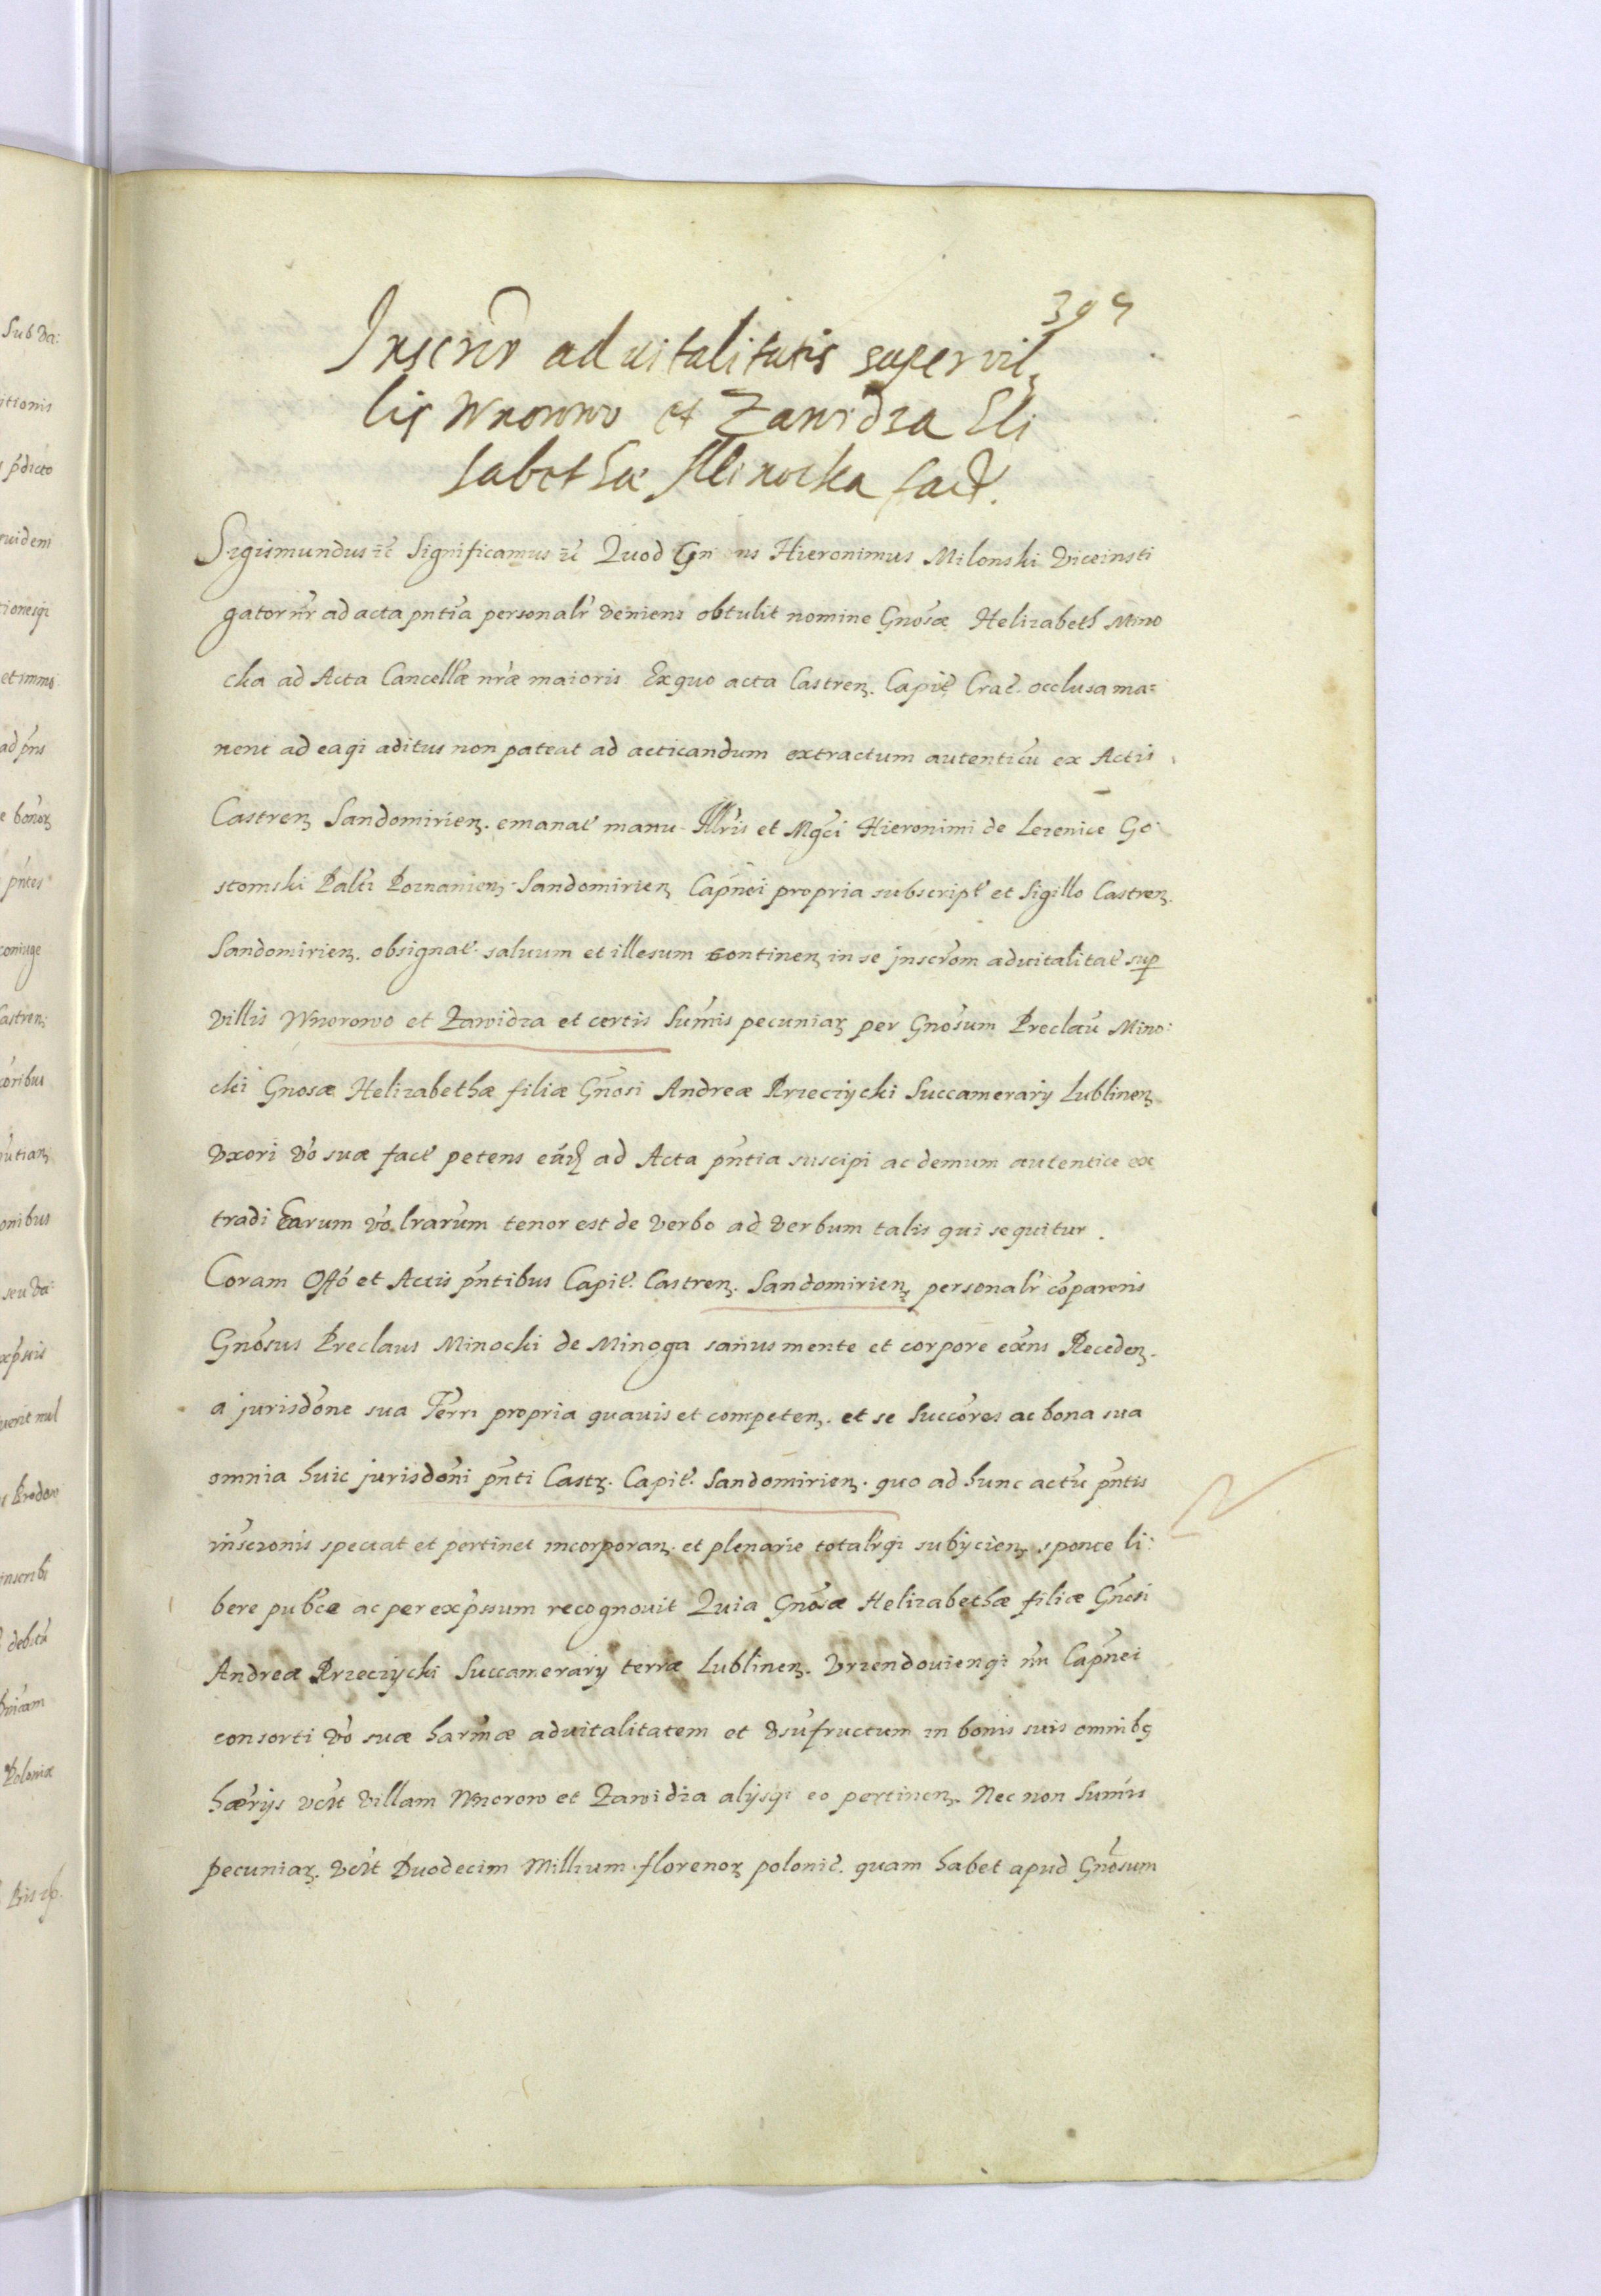 399
Inscrō aduitalitatis super vil
lis Wnorowo et Zawidza Eli
sabethæ Minocka fact.
Sigismundus etc̄ Significamus etc̄ Quod Gn̄ ns Hieronimus Milonski Viceinsti
gator nr̄ ad acta pntīa personalr̄ veniens obtulit nomine Gnosæ Helizabeth Mino
cka ad Acta Cancellæ nr̄æ maioris Ex quo acta Castreṇ. Capit̄ Crac̄. occlusa ma=
nent ad eaqꝫ aditus non pateat ad acticandum extractum autenticū ex Actis
Castreṇ Sandomirieṇ. emanat̄ manu Illr̄is et Mgc̄i Hieronimi de Lezenice Go:
stomski Palt̄i Poznanieṇ Sandomirieṇ Capn̄ei propria subscript̄ et Sigillo Castreṇ.
Sandomirieṇ. obsignat̄. saluum et illesum contineṇ in se jnscrōm aduitalitat̄ sup̱
villis Wnorowo et Zawidza et certis Sum̄is pecuniaꝝ per Gnōsum Preclaū Mino:
cki Gnosæ Helizabethæ filiæ Gnōsi Andreæ Przeczycki Succamerarÿ Lublineṇ
vxori vō suæ fact̄ petens eād ad Acta pn̄tia suscipi ac demum autentice ex
tradi Earum vō lrarūm tenor est de verbo ad verbum talis qui sequitur.
Coram Offō et Actis pn̄tibus Capit̄. Castreṇ. Sandomirieṇ personalr̄ cōparens
Gnōsus Preclaus Minocki de Minoga sanus mente et corpore exn̄s Recedeṇ.
a jurisdōne sua Terr̄i propria quauis et competeṇ. et se Succōres ac bona sua
omnia huic jurisdōni pn̄ti Castꝝ. Capit̄. Sandomirieṇ. quo ad hunc actū pn̄tis
inscronis spectat et pertinet incorporaṇ. et plenarie totalr̄qꝫ subÿcieṇ. sponte li:
bere pub̄ce ac per exp̄ssum recognouit Quia Gnōsæ Helizabethæ filiæ Gnōsi
Andreæ Przeczycki Succamerarÿ terræ Lublineṇ. Vrzendouienqꝫ nr̄i Capn̄ei
consorti vō suæ charm̄æ aduitalitatem et vsūfructum in bonis suis omnibꝫ
hær̄ÿs vcīt villam Wnorow et Zawidza alÿsqꝫ eo pertineṇ. Nec non Sum̄is
pecuniaꝝ. vcīt Duodecim Millium florenoꝝ polonic̄. quam habet apud Gnōsum